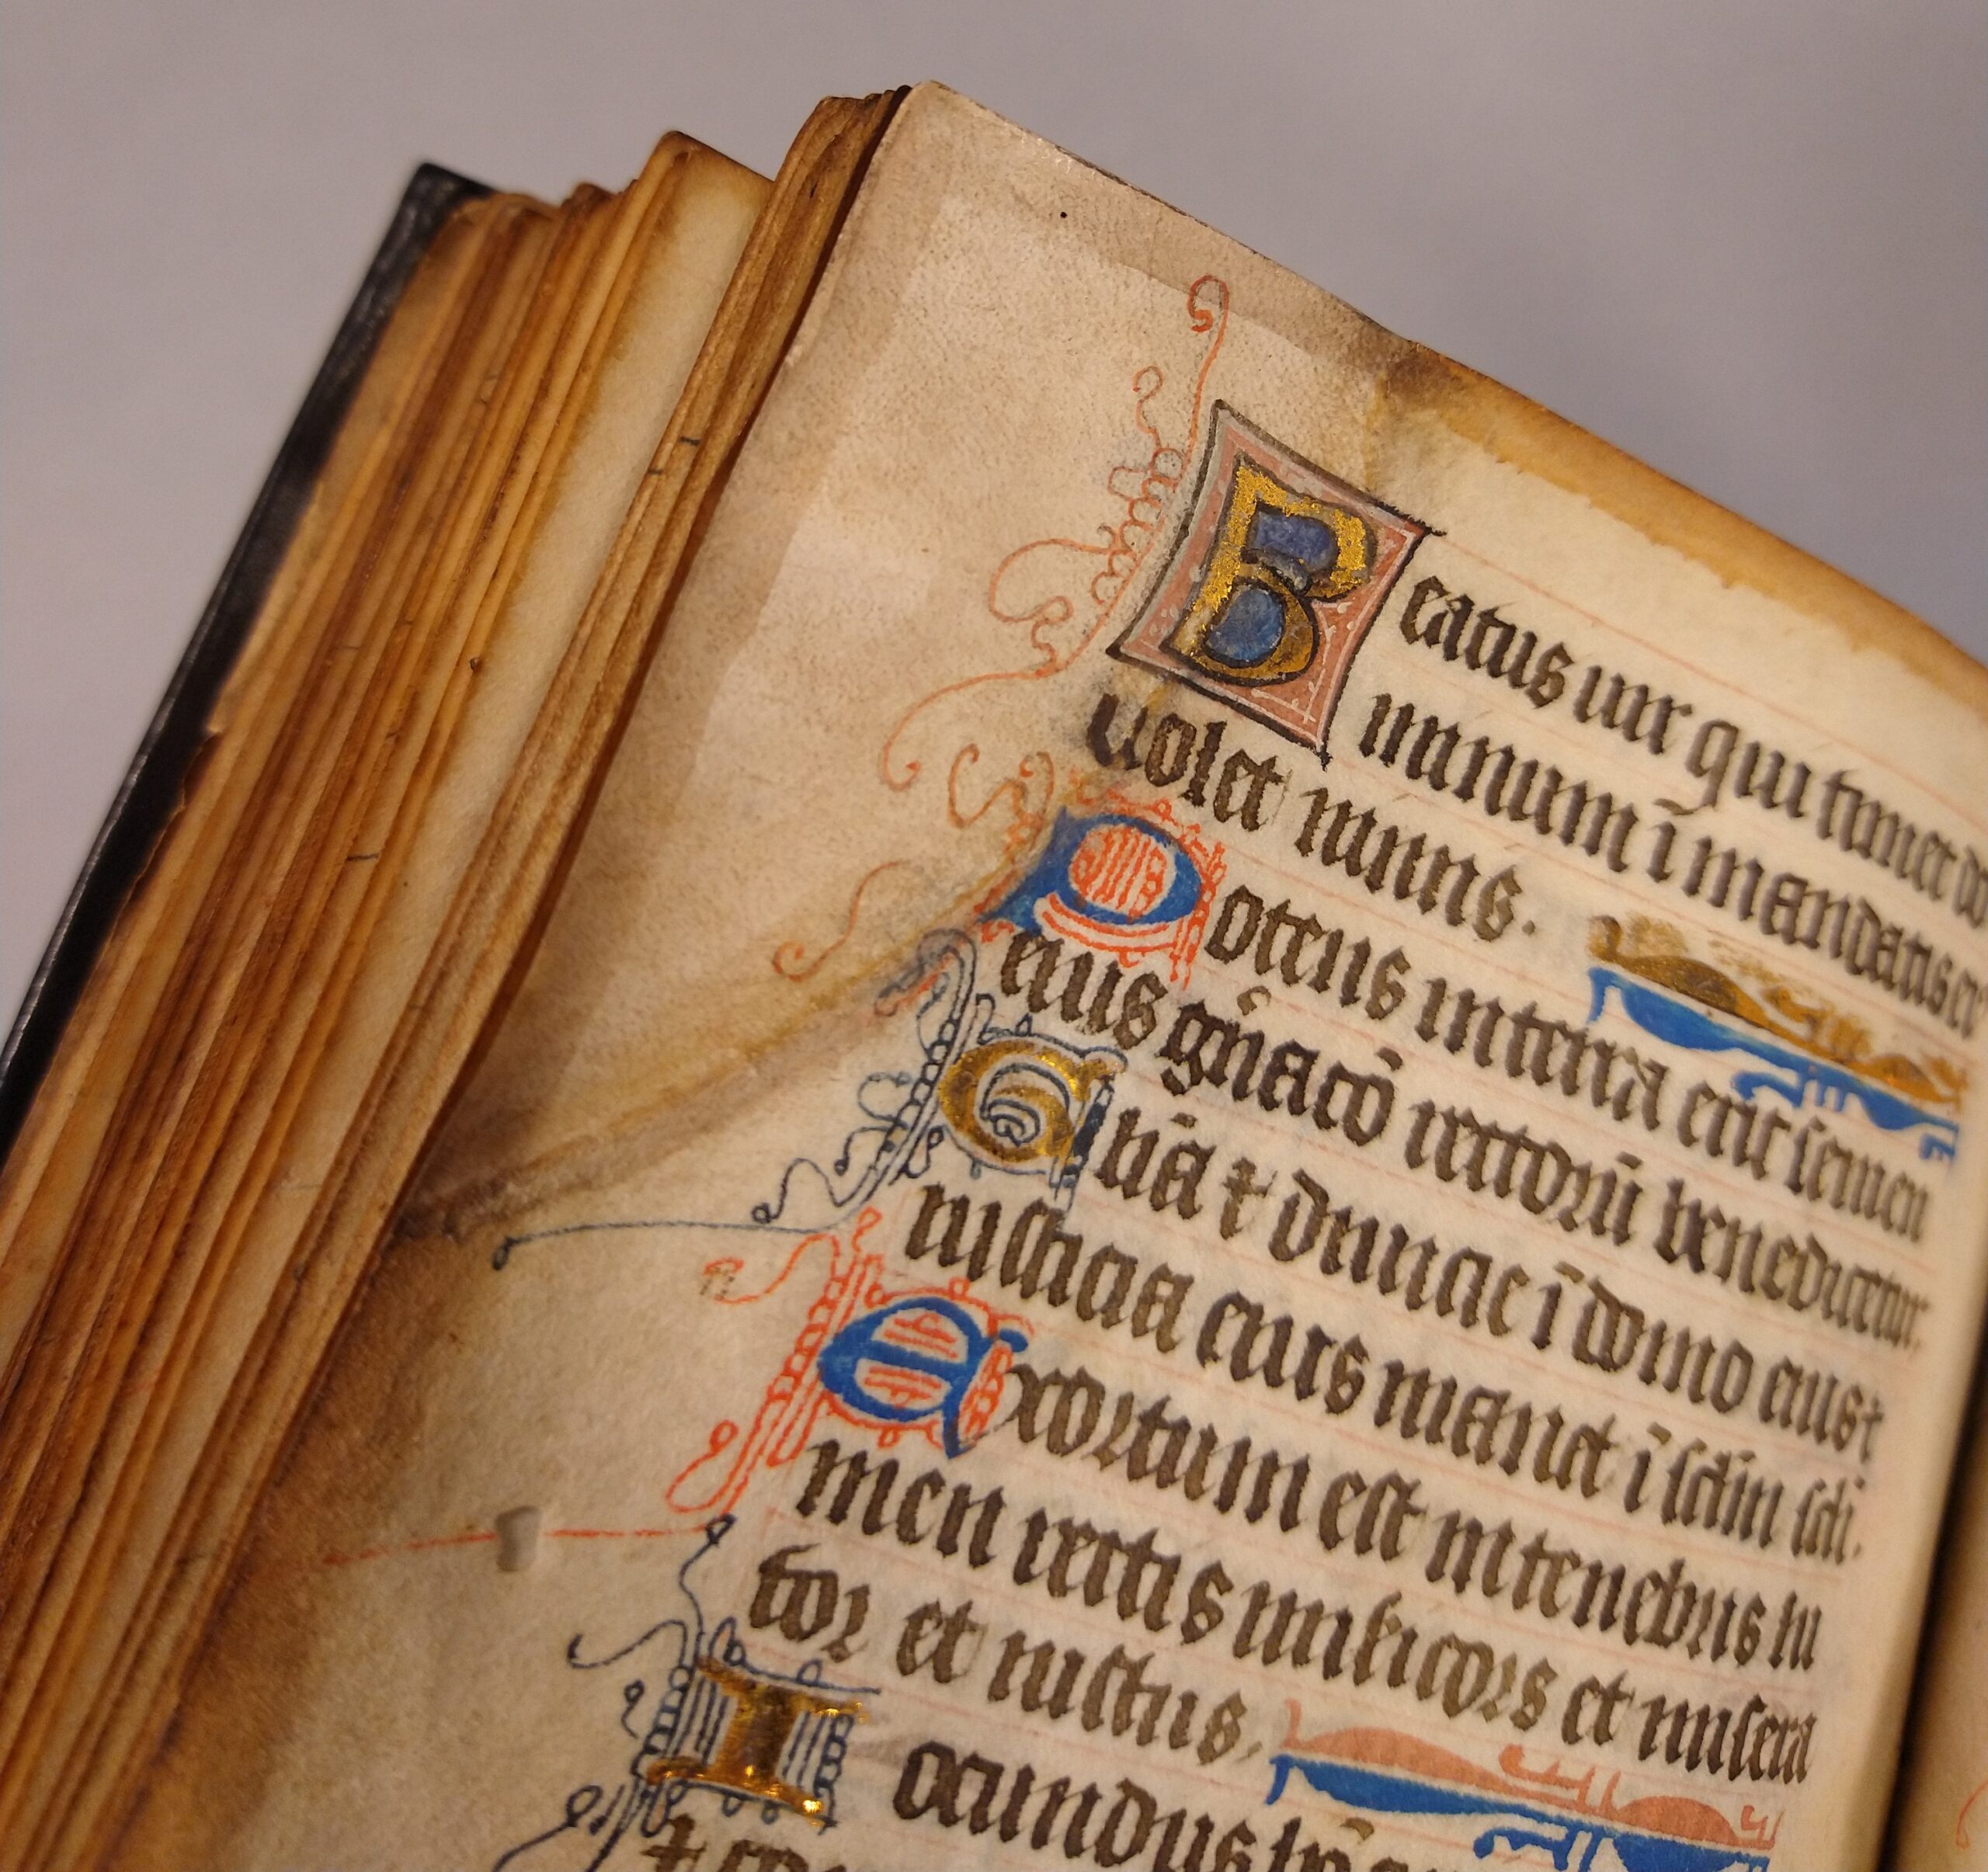 Beatus uir qui timet do
minum ī mandatis ei
uolet nimis.
Potens in terra erit semen
eius gn̄acō rectorū benedicetur.
Glīa ⁊ diuicie ī domo eius ⁊
iusticia eius manet ī sclm̄ scli.
Exortum est in tenebris lu
men rectis mīsericors et misera
tor et iustus.
Iocundus